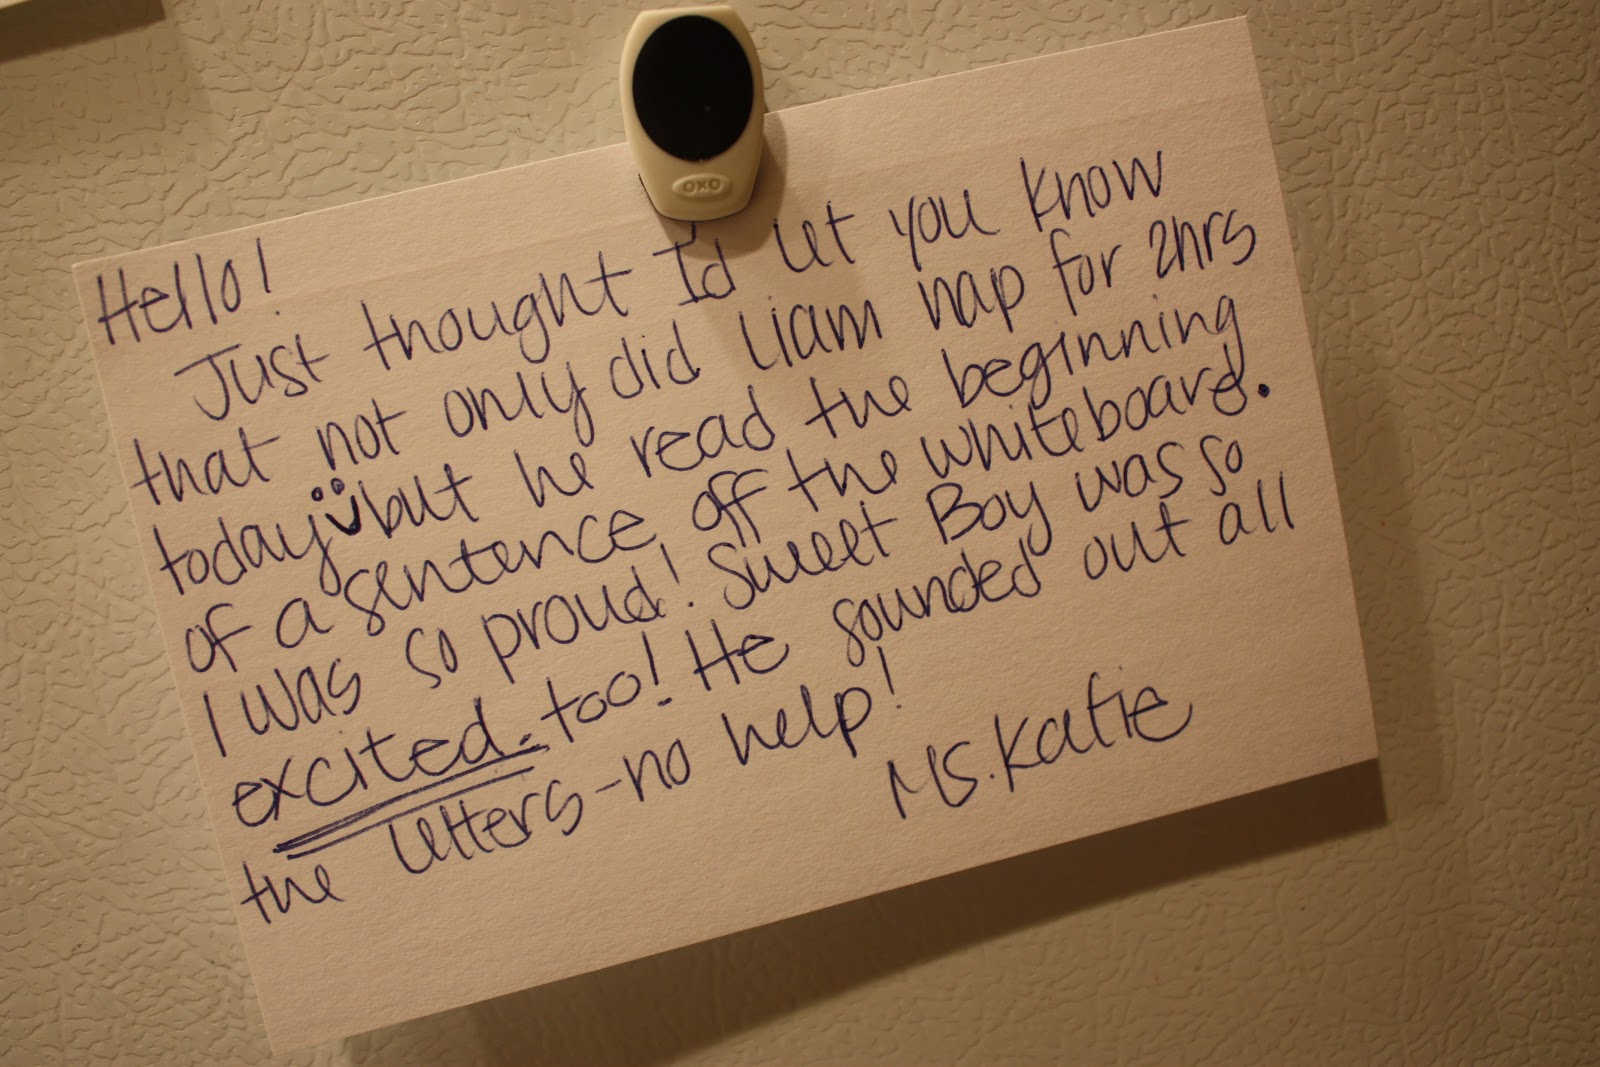 OXO
Hello!
Just thought I'd let you know
that not only did Liam nap for 2hrs
today but he read the beginning
of a sentence off the whiteboard.
I was so proud! Sweet Boy was so
excited too! He sounded out all
the letters - no help!
Ms. Katie